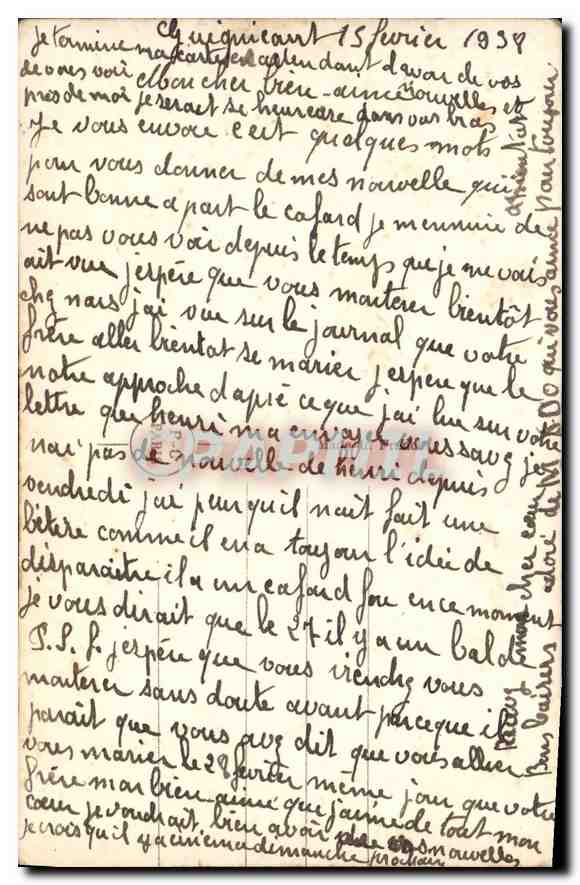 Guignicourt 15 fevrier 1938
Mon cher bien-aimé
Je vous envoie c'est quelques mots
pour vous donner de mes nouvelle qui
sont bonne a part le cafard je mennuie de
ne pas vous voir depuis le temps que je ne vous
ait vue j'espère que vous monterer bientôt
chez nous j'ai vue sur le journal que votre
frère aller bientot se marier j'espere que le
notre approche d'aprè ce que j'ai lue sur votre
lettre que henri m'a envoyer vous savez je
n'ai pas de nouvelle de henri depuis
vendredi j'ai peur qu'il n'ait fait une
bêtise comme il en a toujour l'idée de
disparaitre il a un cafard fou en ce moment
je vous dirait que le 27 il y a un bal de
P.S.F. j'espére que vous viendez vous
monterer sans doute avant parce que il
parait que vous avez dit que vous allier
vous marier le 28 fevrier même jour que votre
frére mon bien-aimé que j'aime de tout mon
cœur je voudrait bien avoir de vos nouvelles
je crois qu'il y a cinema dimanche prochain
je termine ma carte en attendant d'avoir de vos
nouvelles et
de vous voir
près de moi je serait si heureuse dans vos bras
Recevez mon cher cœur
bons baisers adoré de qui vous aime pour toujour